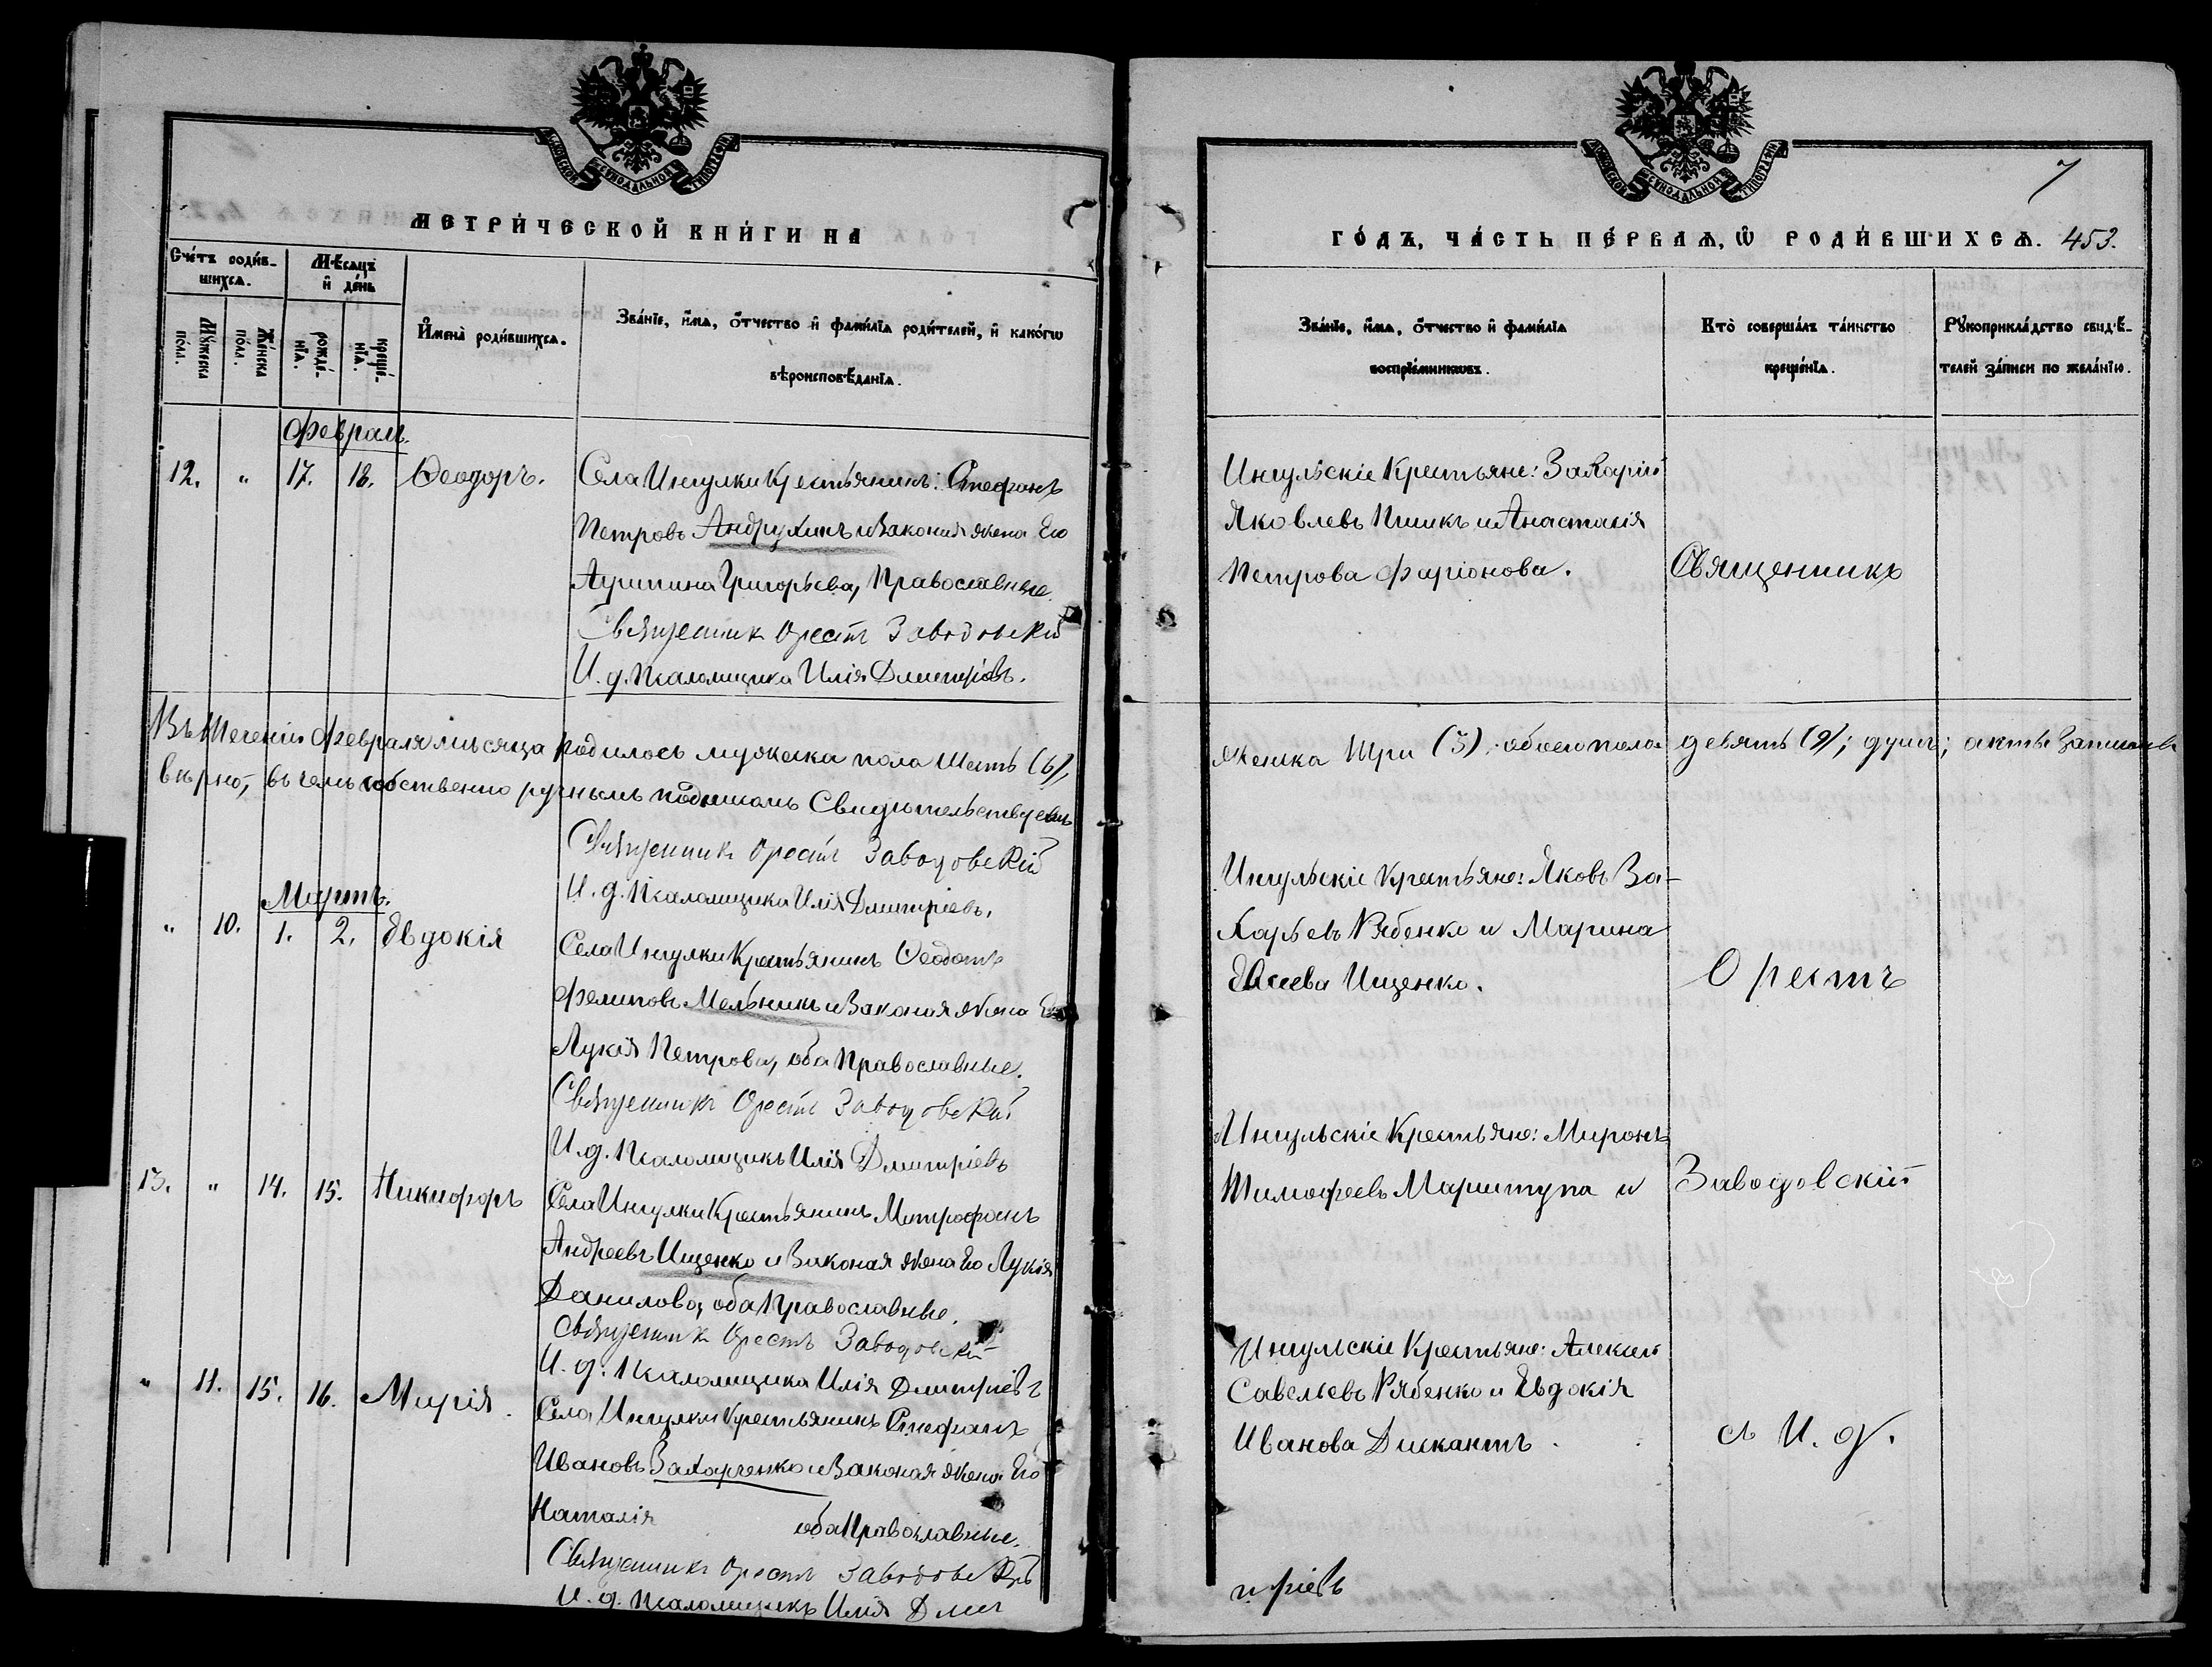 МОСКОВСКОЙ СѴНОДАЛЬНОЙ ТИПОГРАФІИ
МЕТРИ́ЧЕСКОЙ КНИ́ГИ НА
Сче́тъ роди́вшихсѧ.
Мѣ́сѧцъ и҆ де́нь
И҆мена̀ роди́вшихсѧ.
Зва́нїе, и҆́мѧ, ѻ҆́тчество и҆ фами́лїѧ роди́телей, и҆ како́гѡ
вѣроисповѣ́данїѧ.
Мꙋ́жеска по́ла.
Же́нска по́ла.
рожде́нїѧ.
креще́нїѧ.
Февраль.
12. " 17. 18. Ѳеодоръ.
Села Ингулки Крестьянинъ: Стефанъ
Петровъ Андрухинъ и Законная жена Его
Агрипина Григорьева, Православные.
Священник Орестъ Заводовскій
И. д. Псаломщика Илія Дмитріевъ.
Въ Течении Февраля мѣсяца родилось мужеска пола Шесть (6),
вѣрно, въ чемъ собственно ручнымъ подписомъ Свидѣтельствуемъ
Священникъ Орестъ Заводовскій
И. д. Псаломщика Илія Дмитріевъ.
Мартъ.
" 10. 1. 2. Евдокія
Села Ингулки Крестьянинъ Ѳеодотъ
Филиповъ Мельникъ и Законая жена Его
Лукія Петрова, оба Православные.
Священникъ Орестъ Заводовскій
И. д. Псаломщикъ Илія Дмитріевъ
13. " 14. 15. Никифоръ
Села Ингулки Крестьянинъ Митрофанъ
Андреевъ Ищенко и Законая жена Его Лукія
Данилова, оба Православные.
Священник Орестъ Заводовскій
И. д. Псаломщика Илія Дмитріевъ
" 11. 15. 16. Марія.
Села Ингулки Крестьянинъ Стефанъ
Ивановъ Захарченко и Законая жена Его
Наталія оба Православные.
Священникъ Орестъ Заводовскій
И. д. Псаломщикъ Илія Дмит
МОСКОВСКОЙ СѴНОДАЛЬНОЙ ТИПОГРАФІИ
7
ГО́ДЪ, ЧА́СТЬ ПЕ́РВАѦ, Ѡ҆ РОДИ́ВШИХСѦ. 453.
Зва́нїе, и҆́мѧ, ѻ҆́тчество и҆ фами́лїѧ
воспрїе́мникѡвъ.
Кто̀ соверша́лъ та́инство
креще́нїѧ.
Рꙋкоприкла́дство свидѣ́-
телей за́писи по жела́нїю.
Ингульскіе Крестьяне: Захарій
Яковлевъ Пшикъ и Анастасія
Петрова Фаріонова.
Священникъ
женска Три (3), обоего пола девять (9); душъ; акты записаны
Ингульскіе Крестьяне: Яковъ За-
харьевъ Рябенко и Марина
Евсеева Ищенко.
Орестъ
Ингульскіе Крестьяне: Миронъ
Тимофеевъ Мариступа и
Заводовскій
Ингульскіе Крестьяне: Алексѣй
Савельевъ Рябенко и Евдокія
Иванова Дискантъ.
съ И. д.
ріевъ